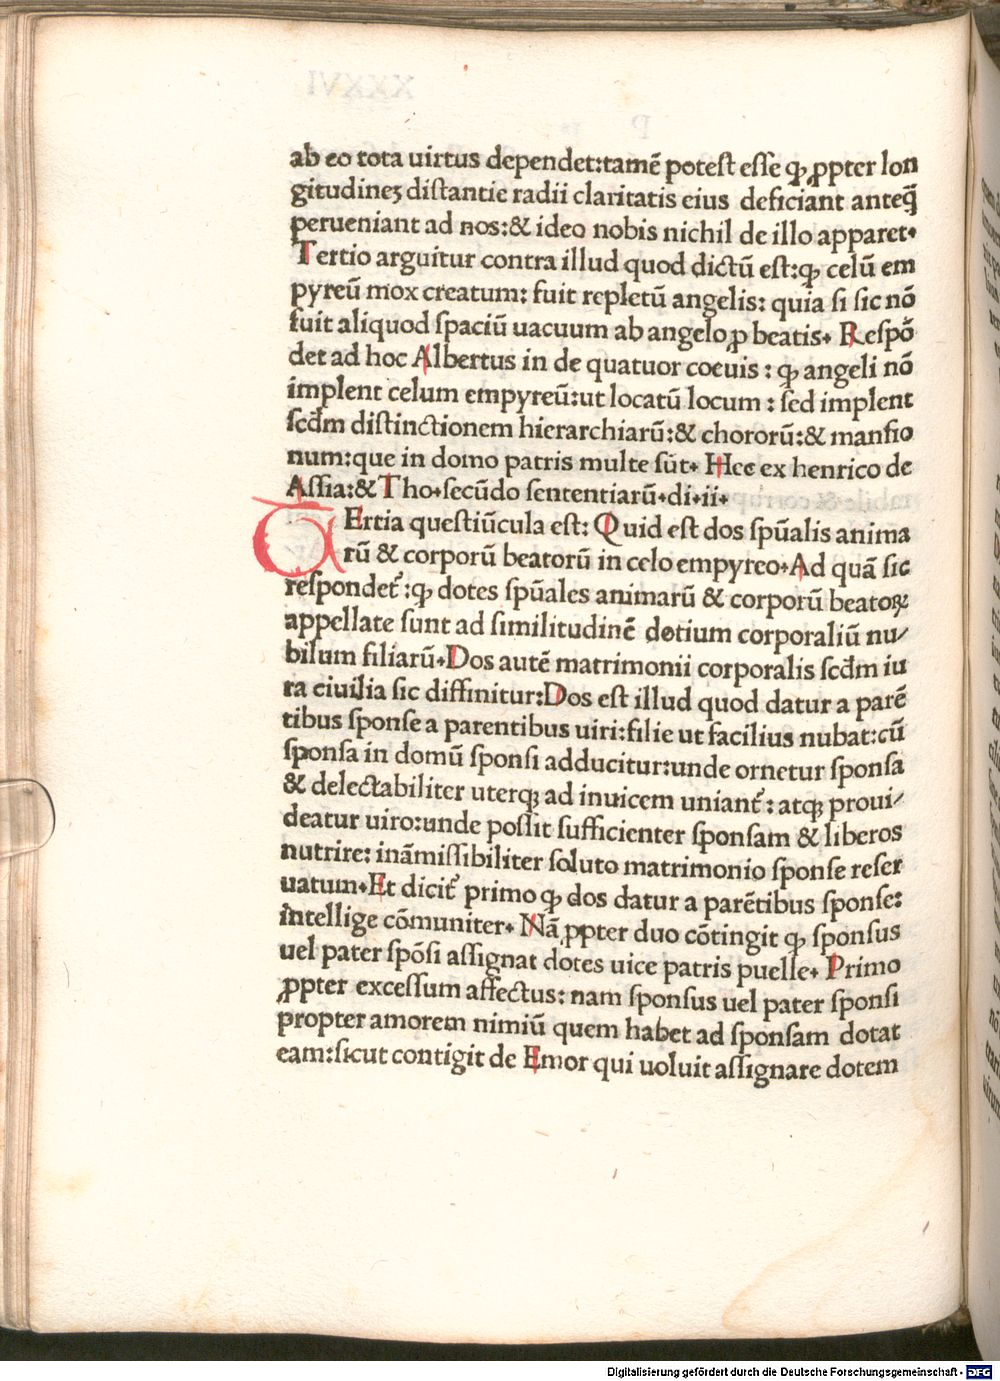 ab eo tota uirtus dependet:tamē potest esse ꝙ ꝓpter lon
gitudineꝫ distantie radii claritatis eius deficiant anteq̄
perueniant ad nos:& ideo nobis nichil de illo apparet.
Tertio arguitur contra illud quod dictū est:ꝙ celū em
pyreū mox creatum: fuit repletū angelis: quia si sic nō
fuit aliquod spaciū uacuum ab angelo ꝓ beatis. Respō
det ad hoc Albertus in de quatuor coeuis : ꝙ angeli nō
implent celum empyreū:ut locatū locum : sed implent
scd̄m distinctionem hierarchiarū:& chororū:& mansio
num:que in domo patris multe sūt. Hec ex henrico de
Assia:& Tho.secūdo sententiarū.di.ii.
TErtia questiūcula est: Quid est dos spūalis anima
rū & corporū beatorū in celo empyreo.Ad quā sic
respondet᷑:ꝙ dotes spūales animarū & corporū beatoꝝ
appellate sunt ad similitudinē dotium corporaliū nu/
bilum filiarū.Dos autē matrimonii corporalis scd̄m iu
ra ciuilia sic diffinitur:Dos est illud quod datur a parē
tibus sponse a parentibus uiri:filie ut facilius nubat:cū
sponsa in domū sponsi adducitur:unde ornetur sponsa
& delectabiliter uterqꝫ ad inuicem uniant᷑: atqꝫ proui/
deatur uiro:unde possit sufficienter sponsam & liberos
nutrire: ināmissibiliter soluto matrimonio sponse reser
uatum.Et dicit᷑ primo ꝙ dos datur a parētibus sponse:
intellige cōmuniter. Nā ꝓpter duo cōtingit ꝙ sponsus
uel pater spōsi assignat dotes uice patris puelle. Primo
ꝓpter excessum affectus: nam sponsus uel pater sponsi
propter amorem nimiū quem habet ad sponsam dotat
eam:sicut contigit de Emor qui uoluit assignare dotem
Digitalisierung gefördert durch die Deutsche Forschungsgemeinschaft - DFG